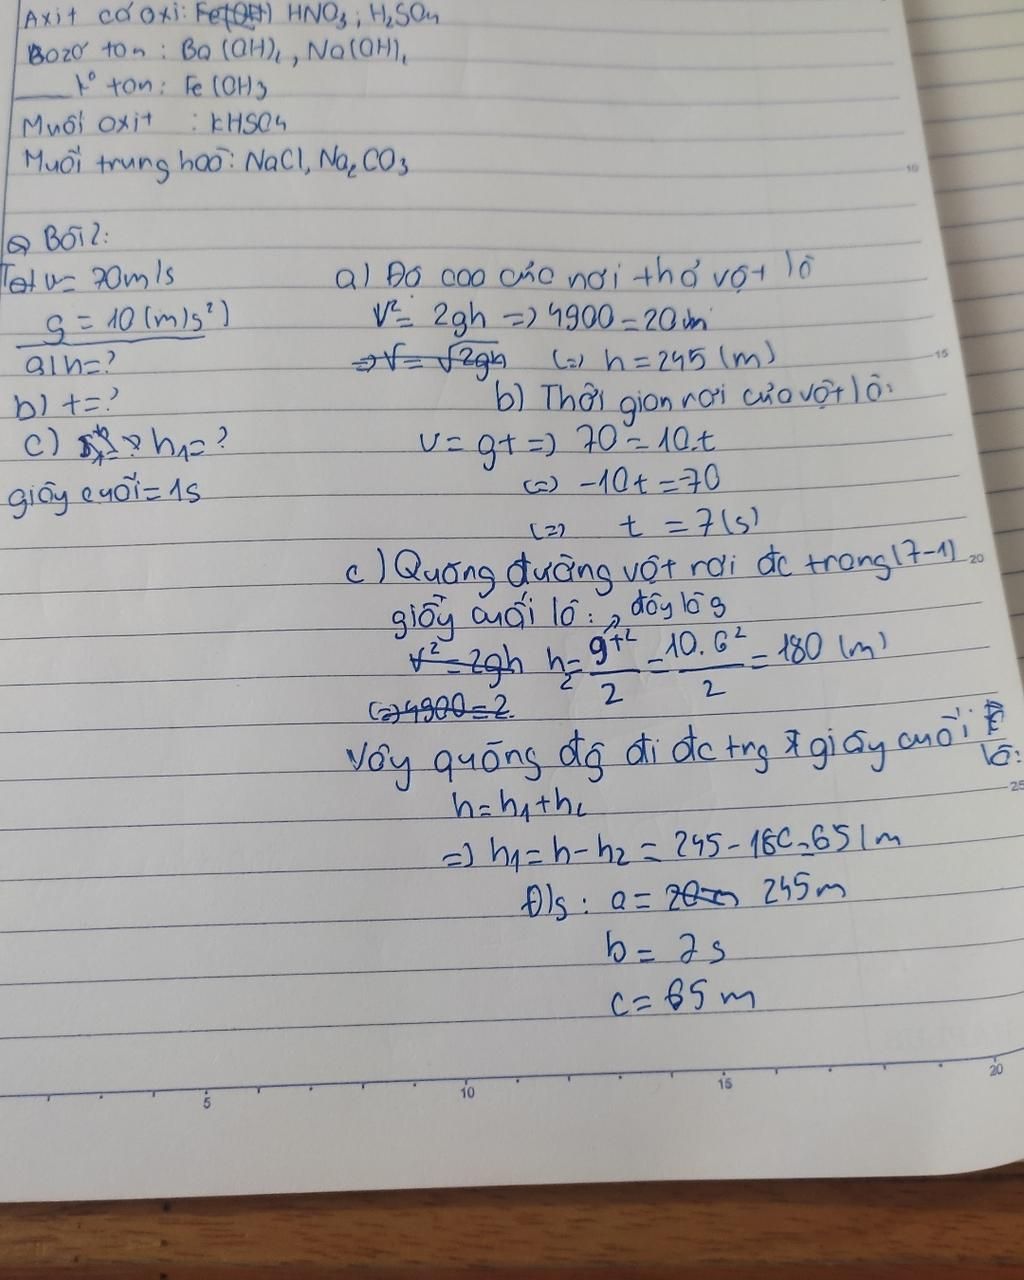 Axit có oxi: Fe(OH) HNO3; H2SO4
Bazơ tan: Ba(OH)2, Na(OH),
___ kº tan: Fe(OH3
Muối axit : KHSO4
Muối trung hoà: NaCl, Na2CO3
10
Bài 2:
Tắt v= 70m/s
g = 10 (m/s²)
a) h=?
b) t=?
c) h1=?
giây cuối=1s
a) Độ cao của nơi thả vật là
V²= 2gh => 4900=20m
=> V= √2gh (=) h=245 (m)
15
b) Thời gian rơi của vật là:
v= gt => 70=10.t
(=) -10t=-70
(=) t = 7(s)
c) Quãng đường vật rơi đc trong (7-1)
20
giây cuối là: đây là g
v²=2gh h2= gt²/2 = 10.6²/2 = 180 (m)
(=) 4900=2.
Vậy quãng đg đi đc trg 1 giây cuối
là:
25
h=h1+h2
=> h1=h-h2= 245-180=65(m
Đ/s: a= 20m 245m
b= 7s
c= 65m
5 10 15 20